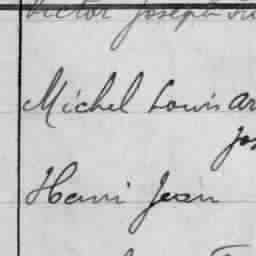 Victor Joseph
Michel Louis
Henri Jean